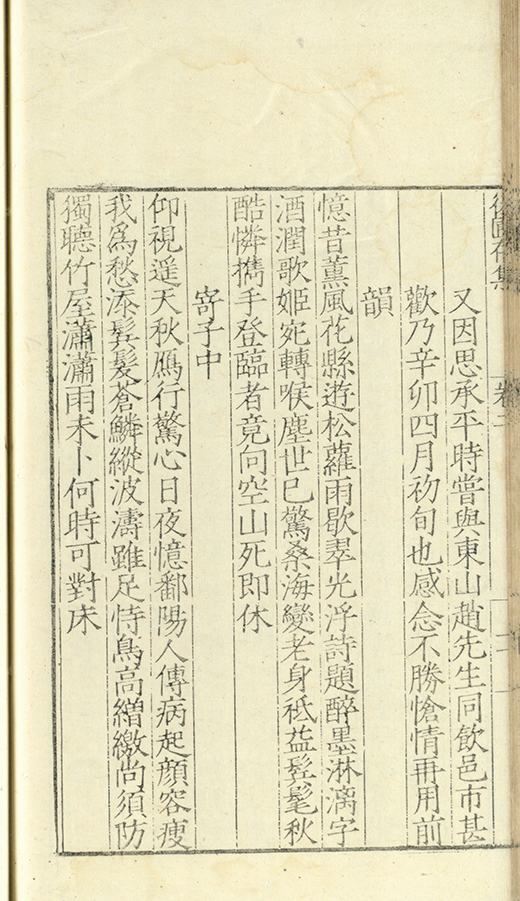 卷二
又因思承平時嘗與東山趙先生同飲邑市甚
歡乃辛卯四月初旬也感念不勝愴情再用前
韻
憶昔薰風花縣遊松蘿雨歇翠光浮詩題醉墨淋漓字
酒潤歌姬宛轉喉塵世已驚桑海變老身祗益鬂髦秋
酷憐攜手登臨者竟向空山死即休
寄子中
仰視遥天秋鴈行驚心日夜憶鄱陽人傳病起顔容瘦
我為愁添鬂髮蒼鱗縱波濤雖足恃鳥高繒繳尚須防
獨聽竹屋瀟瀟雨未卜何時可對床